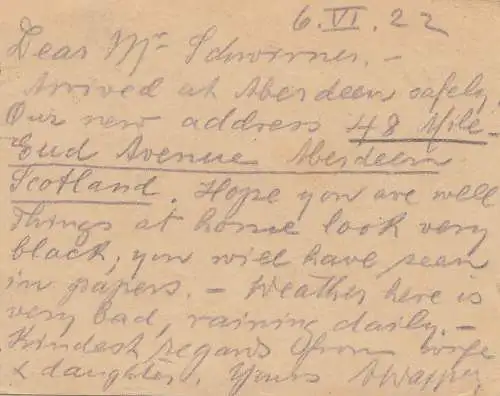 6.VI.22
Dear Mr Schwirner. -
Arrived at Aberdeen safely,
Our new address 48 Mile-
End Avenue Aberdeen
Scotland. Hope you are well
Things at home look very
black; you will have seen
in papers. - Weather here is
very bad, raining daily. -
Kindest regards from wife
& daughter. Yours